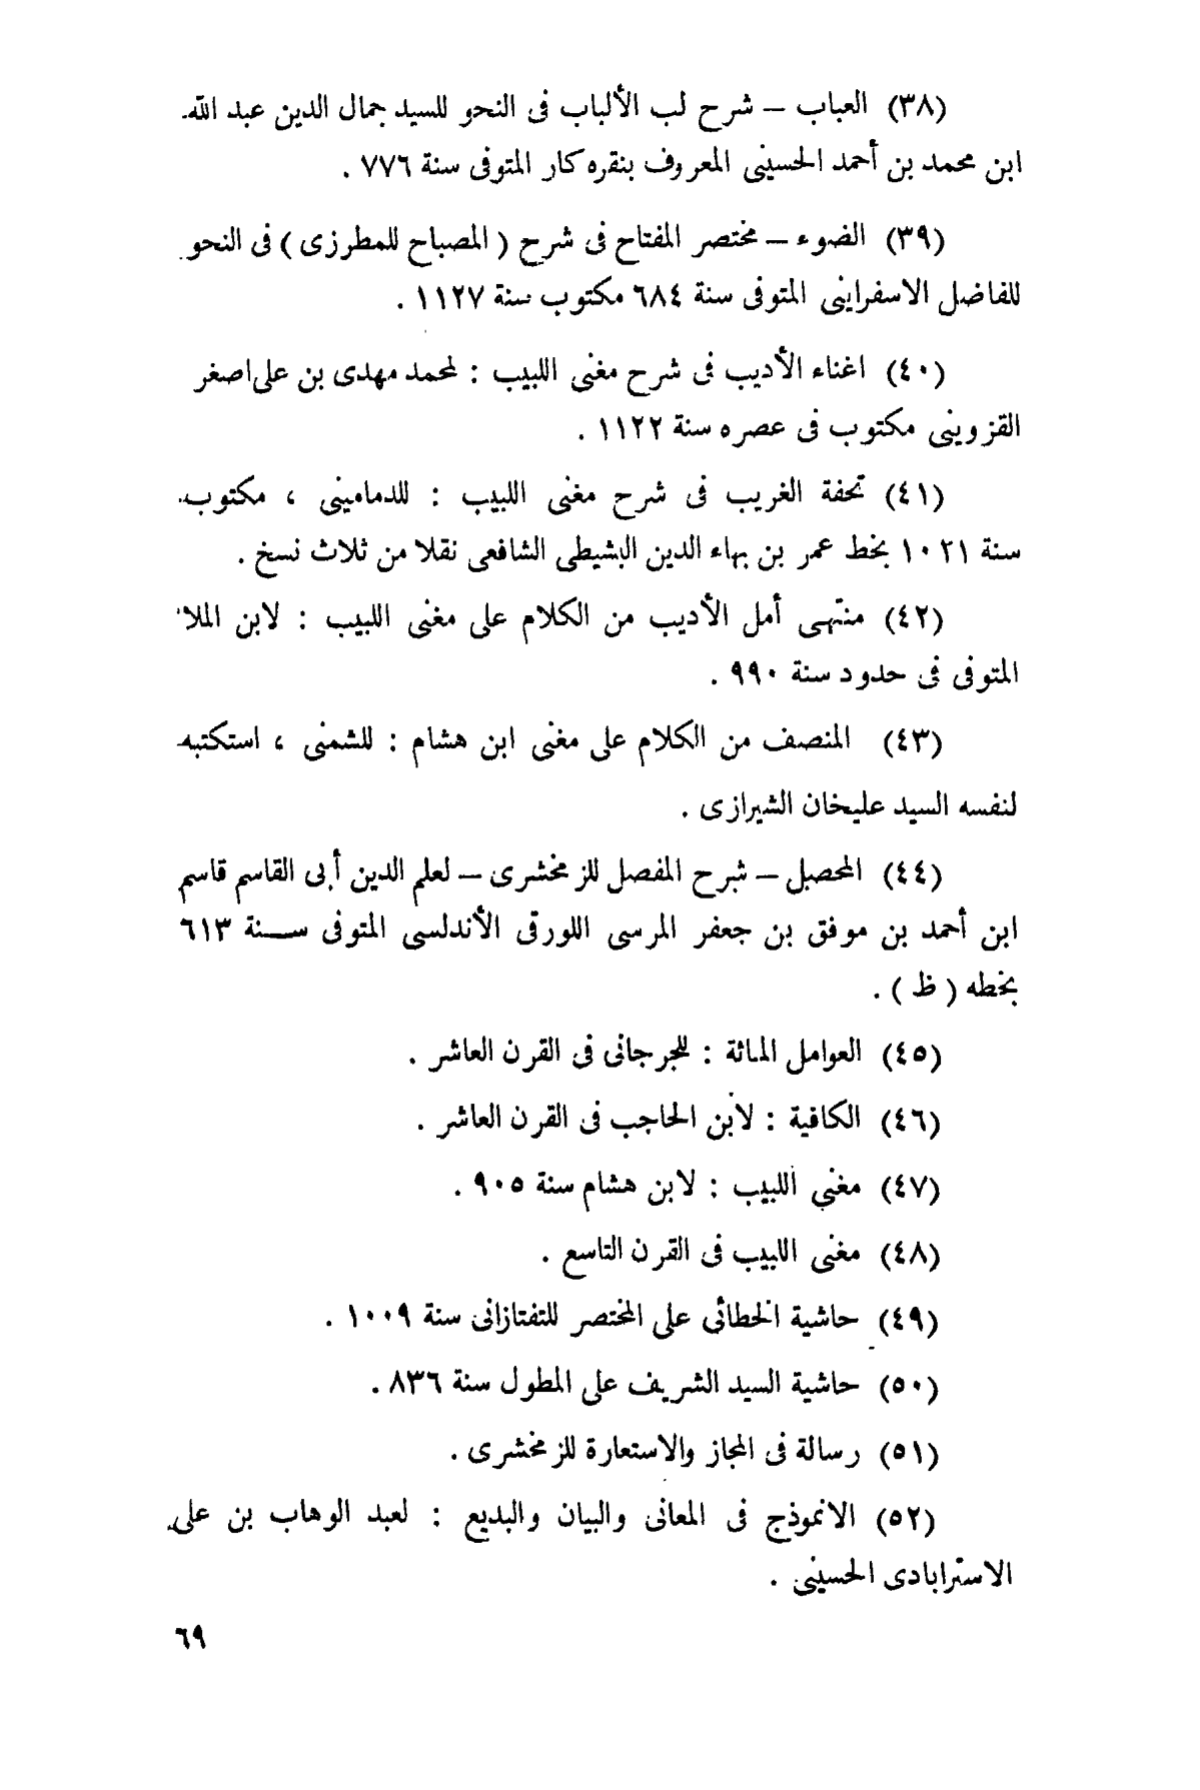 (٣٨) العباب – شرح لب الألباب فى النحو للسيد جمال الدين عبد الله
ابن محمد بن أحمد الحسينى المعروف بنقره كار المتوفى سنة ٧٧٦ .
(٣٩) الضوء – مختصر المفتاح فى شرح ( المصباح للمطرزى ) فى النحو
للفاضل الاسفراينى المتوفى سنة ٦٨٤ مكتوب سنة ١١٢٧ .
(٤٠) اغناء الأديب فى شرح مغنى اللبيب : لمحمد مهدى بن على اصغر
القزوينى مكتوب فى عصره سنة ١١٢٢ .
(٤١) تحفة الغريب فى شرح مغنى اللبيب : للدمامينى ، مكتوب
سنة ١٠٢١ بخط عمر بن بهاء الدين البشيطى الشافعى نقلا من ثلاث نسخ .
(٤٢) منتهى أمل الأديب من الكلام على مغنى اللبيب : لابن الملا
المتوفى فى حدود سنة ٩٩٠ .
(٤٣) المنصف من الكلام على مغنى ابن هشام : للشمنى ، استكتبه
لنفسه السيد عليخان الشيرازى .
(٤٤) المحصل – شرح المفصل للزمخشرى – لعلم الدين أبى القاسم قاسم
ابن أحمد بن موفق بن جعفر المرسى اللورقى الأندلسى المتوفى ســنة ٦١٣
بخطه ( ظ ) .
(٤٥) العوامل المائة : للجرجانى فى القرن العاشر .
(٤٦) الكافية : لابن الحاجب فى القرن العاشر .
(٤٧) مغني اللبيب : لابن هشام سنة ٩٠٥ .
(٤٨) مغنى اللبيب فى القرن التاسع .
(٤٩) حاشية الخطائى على المختصر للتفتازانى سنة ١٠٠٩ .
(٥٠) حاشية السيد الشريف على المطول سنة ٨٣٦ .
(٥١) رسالة فى المجاز والاستعارة للزمخشرى .
(٥٢) الانموذج فى المعانى والبيان والبديع : لعبد الوهاب بن على
الاسترابادى الحسينى .
٦٩